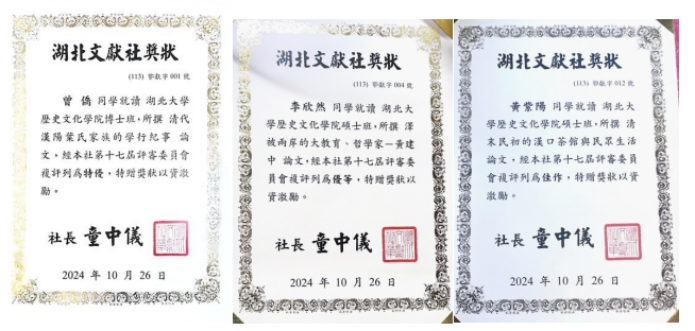 湖北文獻社獎狀
(113) 鄂獻字 001 號
曾僑 同學就讀 湖北大學
歷史文化學院博士班，所撰 清代
漢陽葉氏家族的學行紀事 論
文，經本社第十七屆評審委員會
複評列為特優，特贈獎狀以資
激勵。
社長 童中儀
2024 年 10 月 26 日
湖北文獻社獎狀
(113) 鄂獻字 004 號
李欣然 同學就讀 湖北大
學歷史文化學院碩士班，所撰 澤
被兩岸的大教育、哲學家－黃建
中 論文，經本社第十七屆評審委
員會複評列為優等，特贈獎狀以
資激勵。
社長 童中儀
2024 年 10 月 26 日
湖北文獻社獎狀
(113) 鄂獻字 012 號
黃紫陽 同學就讀 湖北大
學歷史文化學院碩士班，所撰 清
末民初的漢口茶館與民眾生活
論文，經本社第十七屆評審委員
會複評列為佳作，特贈獎狀以資
激勵。
社長 童中儀
2024 年 10 月 26 日